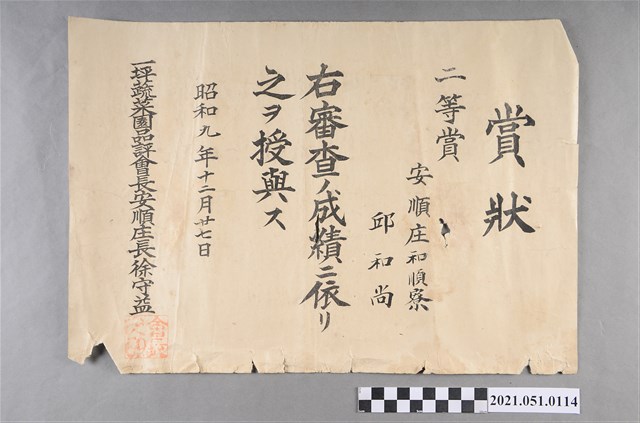 賞狀
二等賞
安順庄和順寮
邱和尚
右審査ノ成績ニ依リ
之ヲ授與ス
昭和九年十二月廿七日
一坪蔬菜園品評會長安順庄長徐守益
2021.051.0114